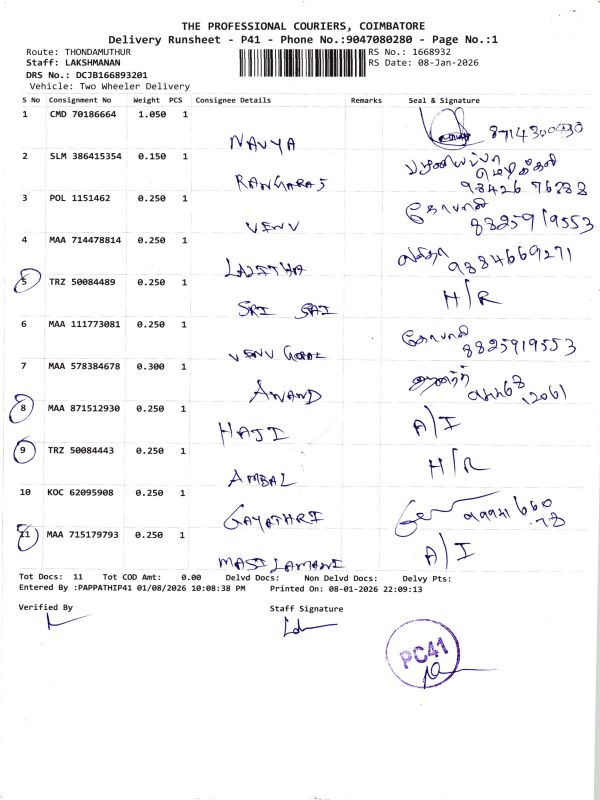 THE PROFESSIONAL COURIERS, COIMBATORE
Delivery Runsheet - P41 - Phone No.:9047080280 - Page No.:1
Route: THONDAMUTHUR RS No.: 1668932
Staff: LAKSHMANAN RS Date: 08-Jan-2026
DRS No.: DCJB166893201
Vehicle: Two Wheeler Delivery
S No Consignment No Weight PCS Consignee Details Remarks Seal & Signature
1 CMD 70186664 1.050 1 8714300430
NAVYA
2 SLM 386415354 0.150 1
RANGARAJ 98426 76288
3 POL 1151462 0.250 1 கோபால்
VENU 8825919553
4 MAA 714478814 0.250 1 லலிதா 9884669271
LALITHA
5 TRZ 50084489 0.250 1 H/R
SRI SAI
6 MAA 111773081 0.250 1 கோபால்
VENU GOPAL 8825919553
7 MAA 578384678 0.300 1 ஆனந்த்
ANAND
8 MAA 871512930 0.250 1 A/I
HAJI
9 TRZ 50084443 0.250 1 H/R
AMBAL
10 KOC 62095908 0.250 1
GAYATHRI
11 MAA 715179793 0.250 1 A/I
MASILAMANI
Tot Docs: 11 Tot COD Amt: 0.00 Delvd Docs: Non Delvd Docs: Delvy Pts:
Entered By :PAPPATHIP41 01/08/2026 10:08:38 PM Printed On: 08-01-2026 22:09:13
Verified By Staff Signature
PC41